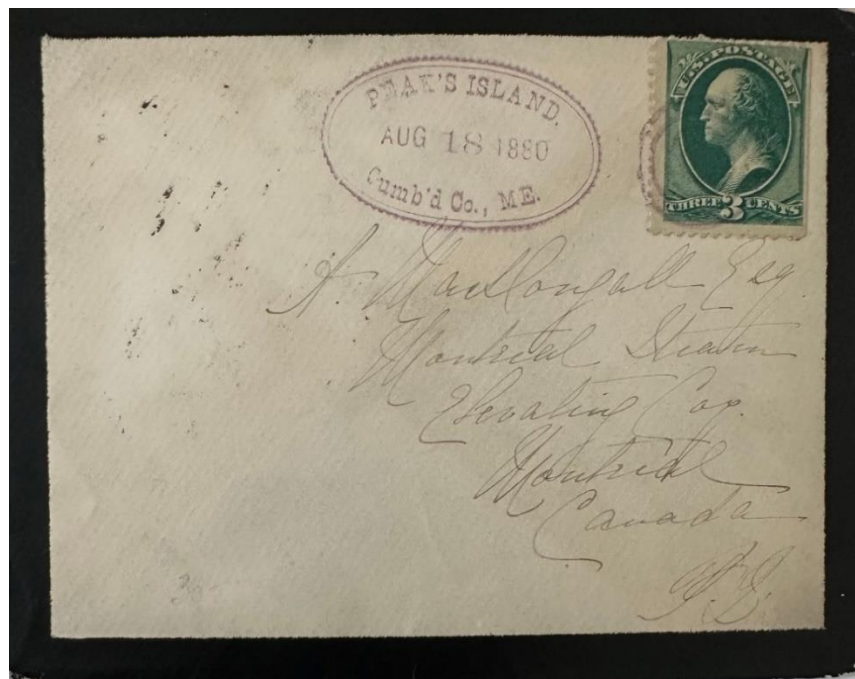 PEAK'S ISLAND.
AUG 18 1880
Cumb'd Co., ME.
U.S. POSTAGE
THREE 3 CENTS
A. MacDougall Esq.
Montreal Steam
Elevating Coy.
Montreal
Canada